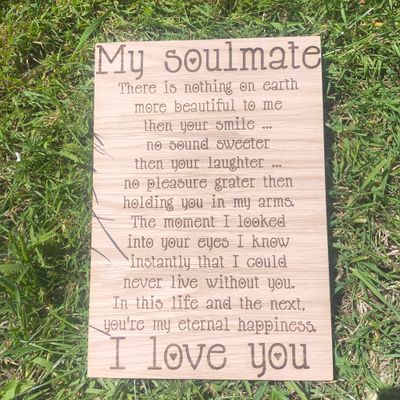 My soulmate
There is nothing on earth
more beautiful to me
then your smile ...
no sound sweeter
then your laughter ...
no pleasure grater then
holding you in my arms.
The moment I looked
into your eyes I know
instantly that I could
never live without you.
In this life and the next,
you're my eternal happiness.
I love you